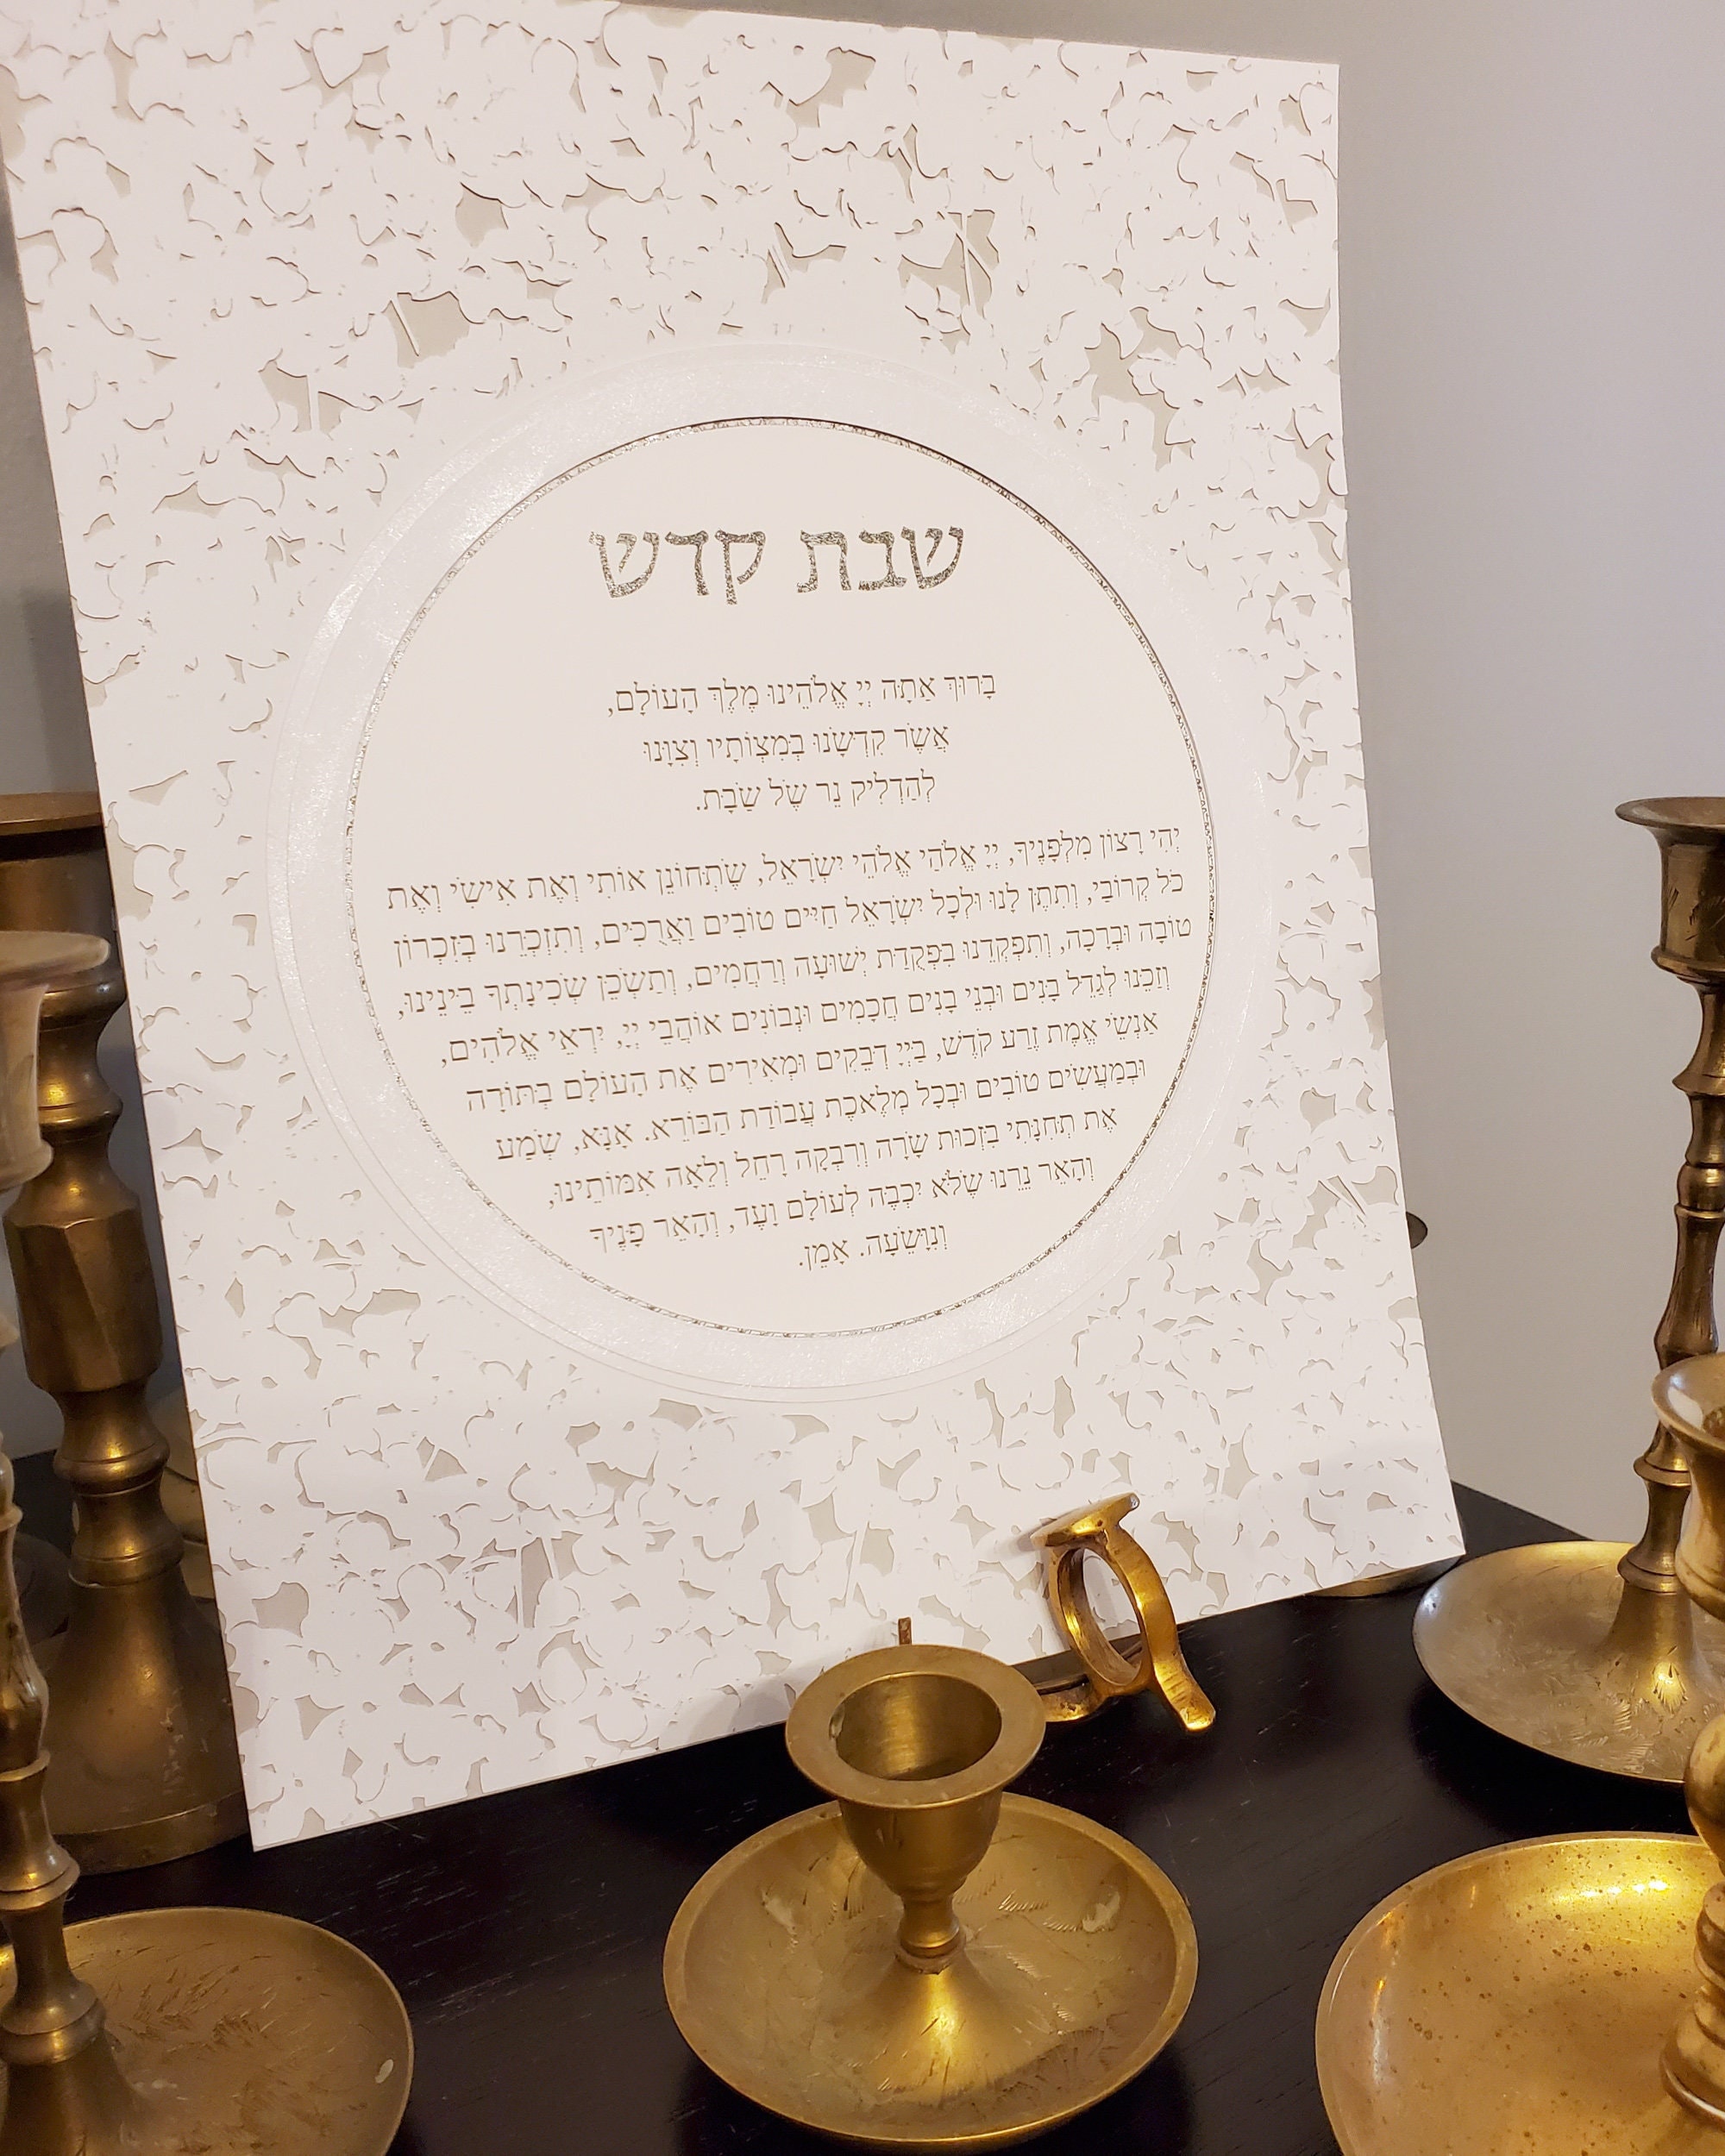 שבת קדש
בָּרוּךְ אַתָּה יְיָ אֱלֹהֵינוּ מֶלֶךְ הָעוֹלָם,
אֲשֶׁר קִדְּשָׁנוּ בְּמִצְוֹתָיו וְצִוָּנוּ
לְהַדְלִיק נֵר שֶׁל שַׁבָּת.
יְהִי רָצוֹן מִלְּפָנֶיךָ, יְיָ אֱלֹהַי אֱלֹהֵי יִשְׂרָאֵל, שֶׁתְּחוֹנֵן אוֹתִי וְאֶת אִישִׁי וְאֶת
כֹּל קְרוֹבַי, וְתִתֶּן לָנוּ וּלְכָל יִשְׂרָאֵל חַיִּים טוֹבִים וַאֲרֻכִּים, וְתִזְכְּרֵנוּ בְּזִכְרוֹן
טוֹבָה וּבְרָכָה, וְתִפְקְדֵנוּ בִּפְקֻדַּת יְשׁוּעָה וְרַחֲמִים, וְתַשְׁכֵּן שְׁכִינָתְךָ בֵּינֵינוּ,
וְזַכֵּנוּ לְגַדֵּל בָּנִים וּבְנֵי בָנִים חֲכָמִים וּנְבוֹנִים אוֹהֲבֵי יְיָ, יִרְאֵי אֱלֹהִים,
אַנְשֵׁי אֱמֶת זֶרַע קֹדֶשׁ, בַּיְיָ דְּבֵקִים וּמְאִירִים אֶת הָעוֹלָם בְּתוֹרָה
וּבְמַעֲשִׂים טוֹבִים וּבְכָל מְלֶאכֶת עֲבוֹדַת הַבּוֹרֵא. אָנָּא, שְׁמַע
אֶת תְּחִנָּתִי בִּזְכוּת שָׂרָה וְרִבְקָה רָחֵל וְלֵאָה אִמּוֹתֵינוּ,
וְהָאֵר נֵרֵנוּ שֶׁלֹּא יִכְבֶּה לְעוֹלָם וָעֶד, וְהָאֵר פָּנֶיךָ
וְנִוָּשֵׁעָה. אָמֵן.